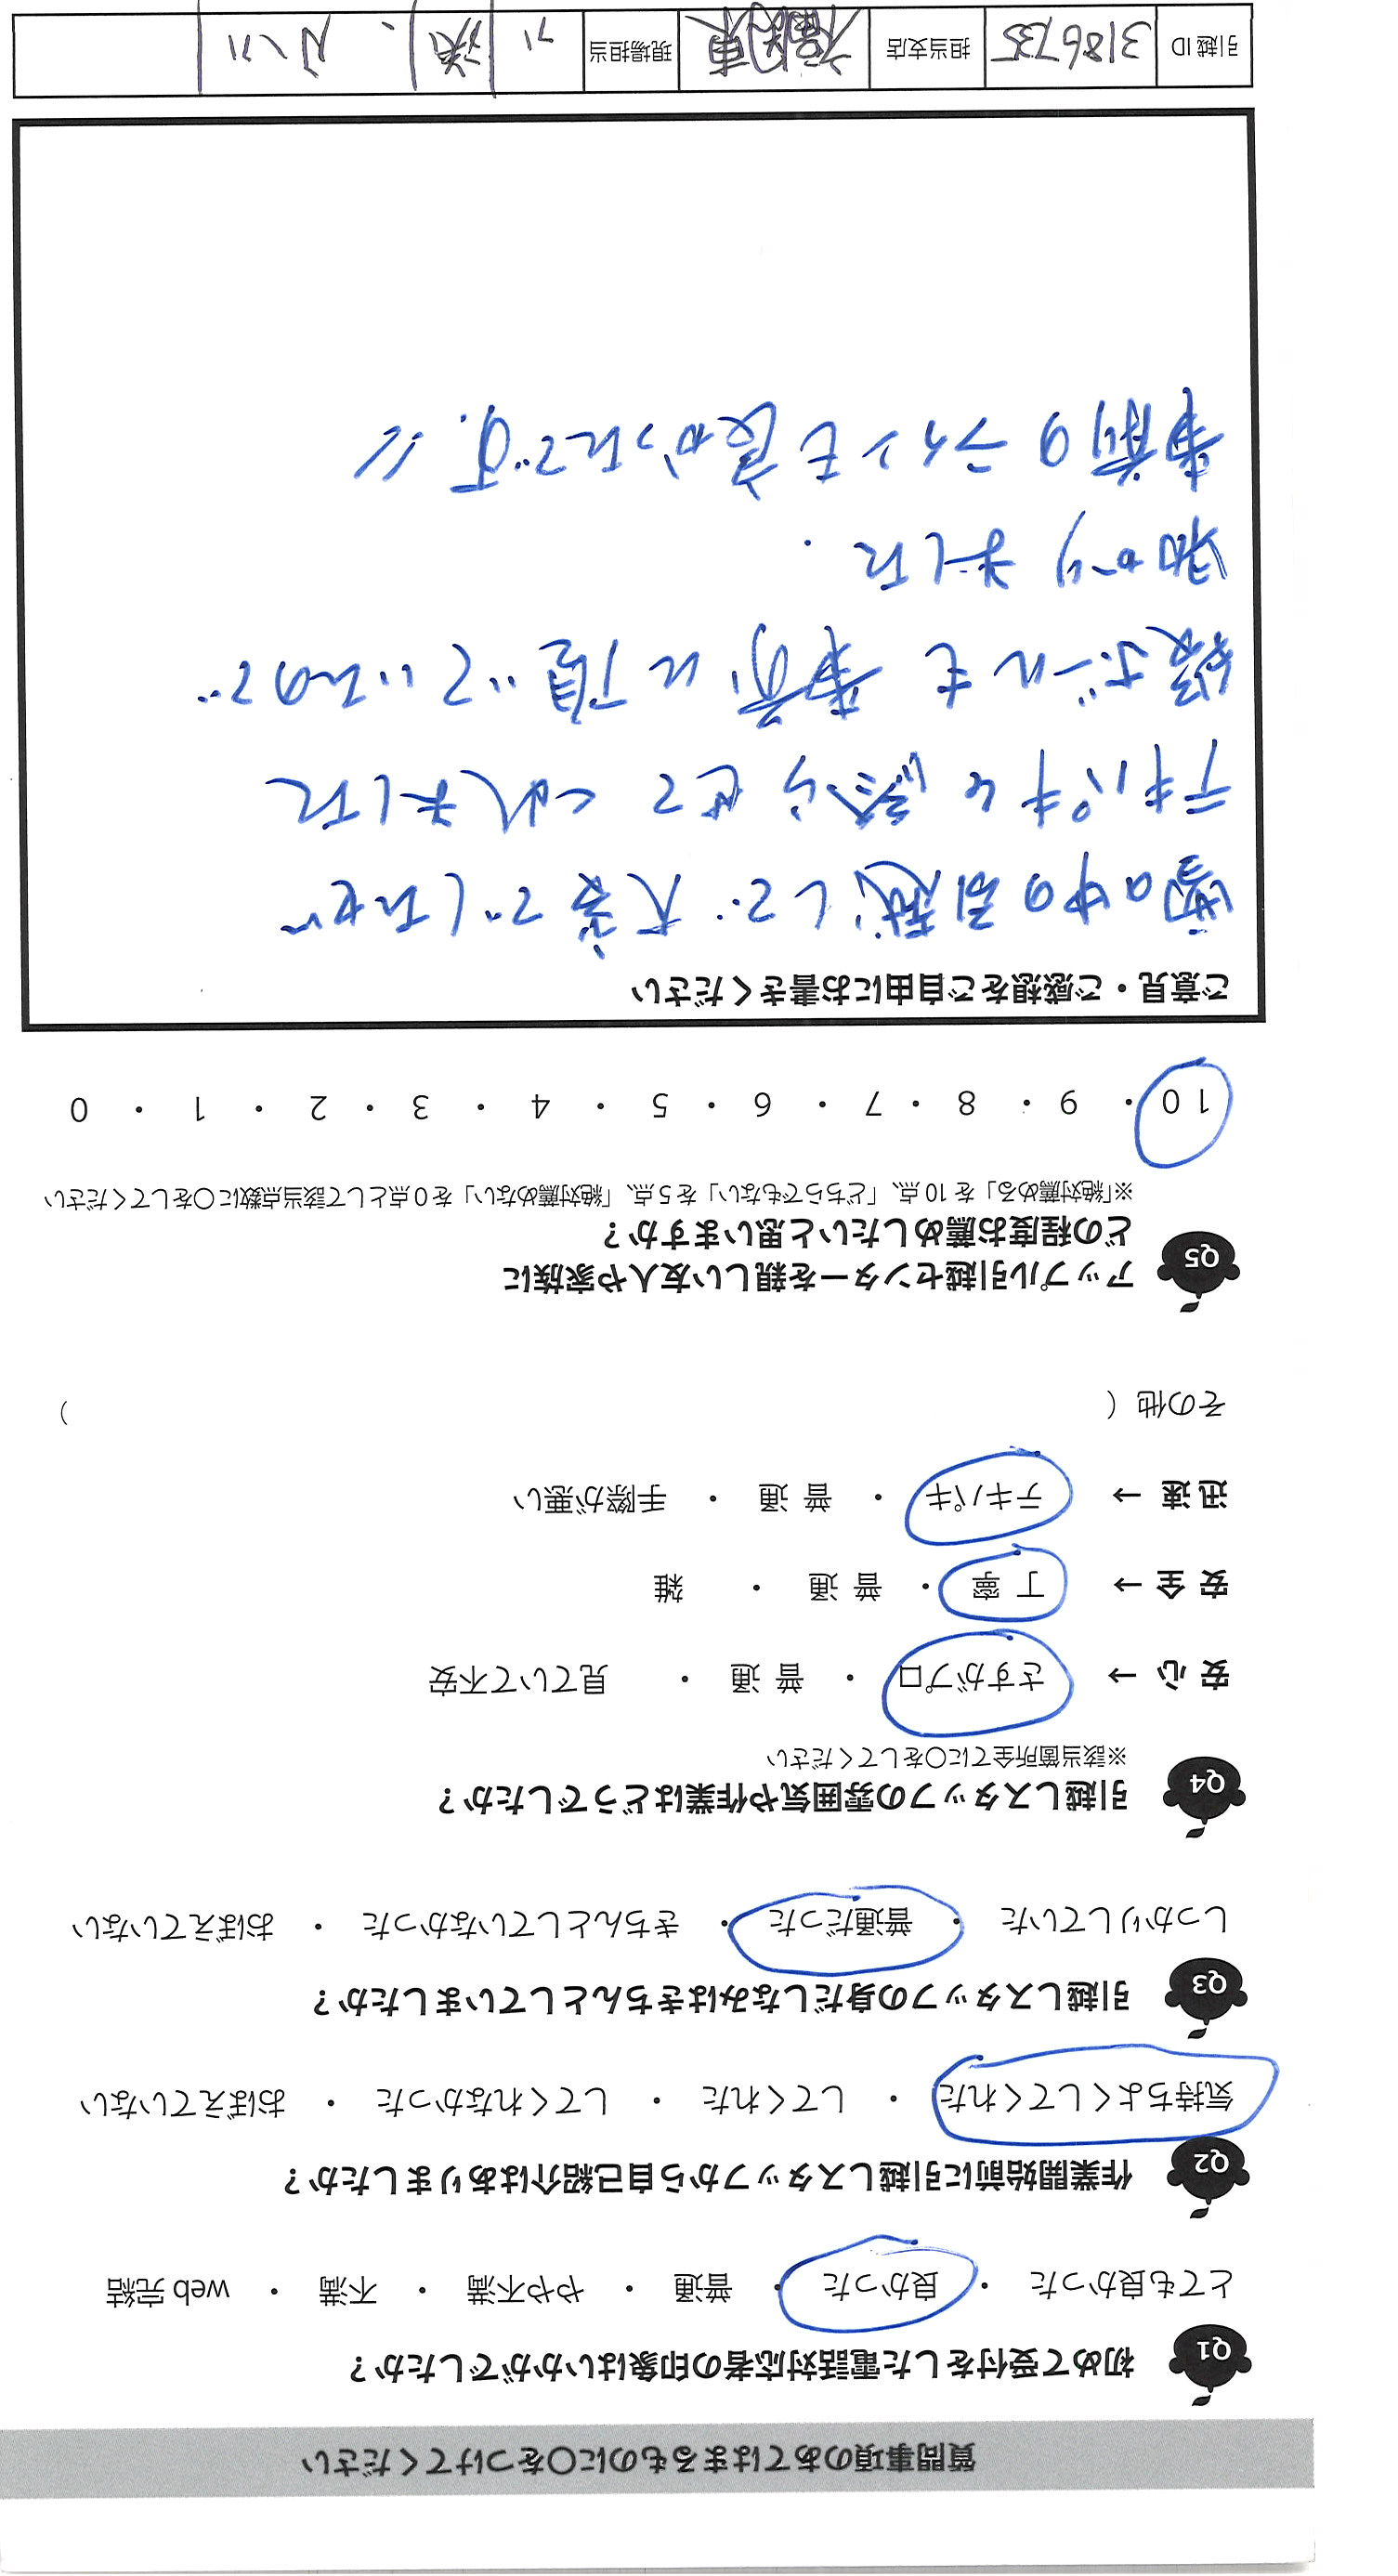 質問事項のあてはまるものに〇をつけてください
Q1 初めて受付をした電話対応者の印象はいかがでしたか？
とても良かった ・ 良かった ・ 普通 ・ やや不満 ・ 不満 ・ web 完結
Q2 作業開始前に引越しスタッフから自己紹介はありましたか？
気持ちよくしてくれた ・ してくれた ・ してくれなかった ・ おぼえていない
Q3 引越しスタッフの身だしなみはきちんとしていましたか？
しっかりしていた ・ 普通だった ・ きちんとしていなかった ・ おぼえていない
Q4 引越しスタッフの雰囲気や作業はどうでしたか？
※該当箇所全てに〇をしてください
安 心 → さすがプロ ・ 普 通 ・ 見ていて不安
安 全 → 丁 寧 ・ 普 通 ・ 雑
迅 速 → テキパキ ・ 普 通 ・ 手際が悪い
その他（ ）
Q5 アップル引越センターを親しい友人や家族に
どの程度お薦めしたいと思いますか？
※「絶対薦める」を 10 点、「どちらでもない」を 5 点、「絶対薦めない」を 0 点として該当点数に〇をしてください
10 ・ 9 ・ 8 ・ 7 ・ 6 ・ 5 ・ 4 ・ 3 ・ 2 ・ 1 ・ 0
ご意見・ご感想をご自由にお書きください
雪の中の引越しで大変でしたが
テキパキと終らせてくれました
段ボールも事前に頂いていたので
助かりました.
事前のラインも良かったです.
引越 ID 3186735 担当支店 北関東 現場担当